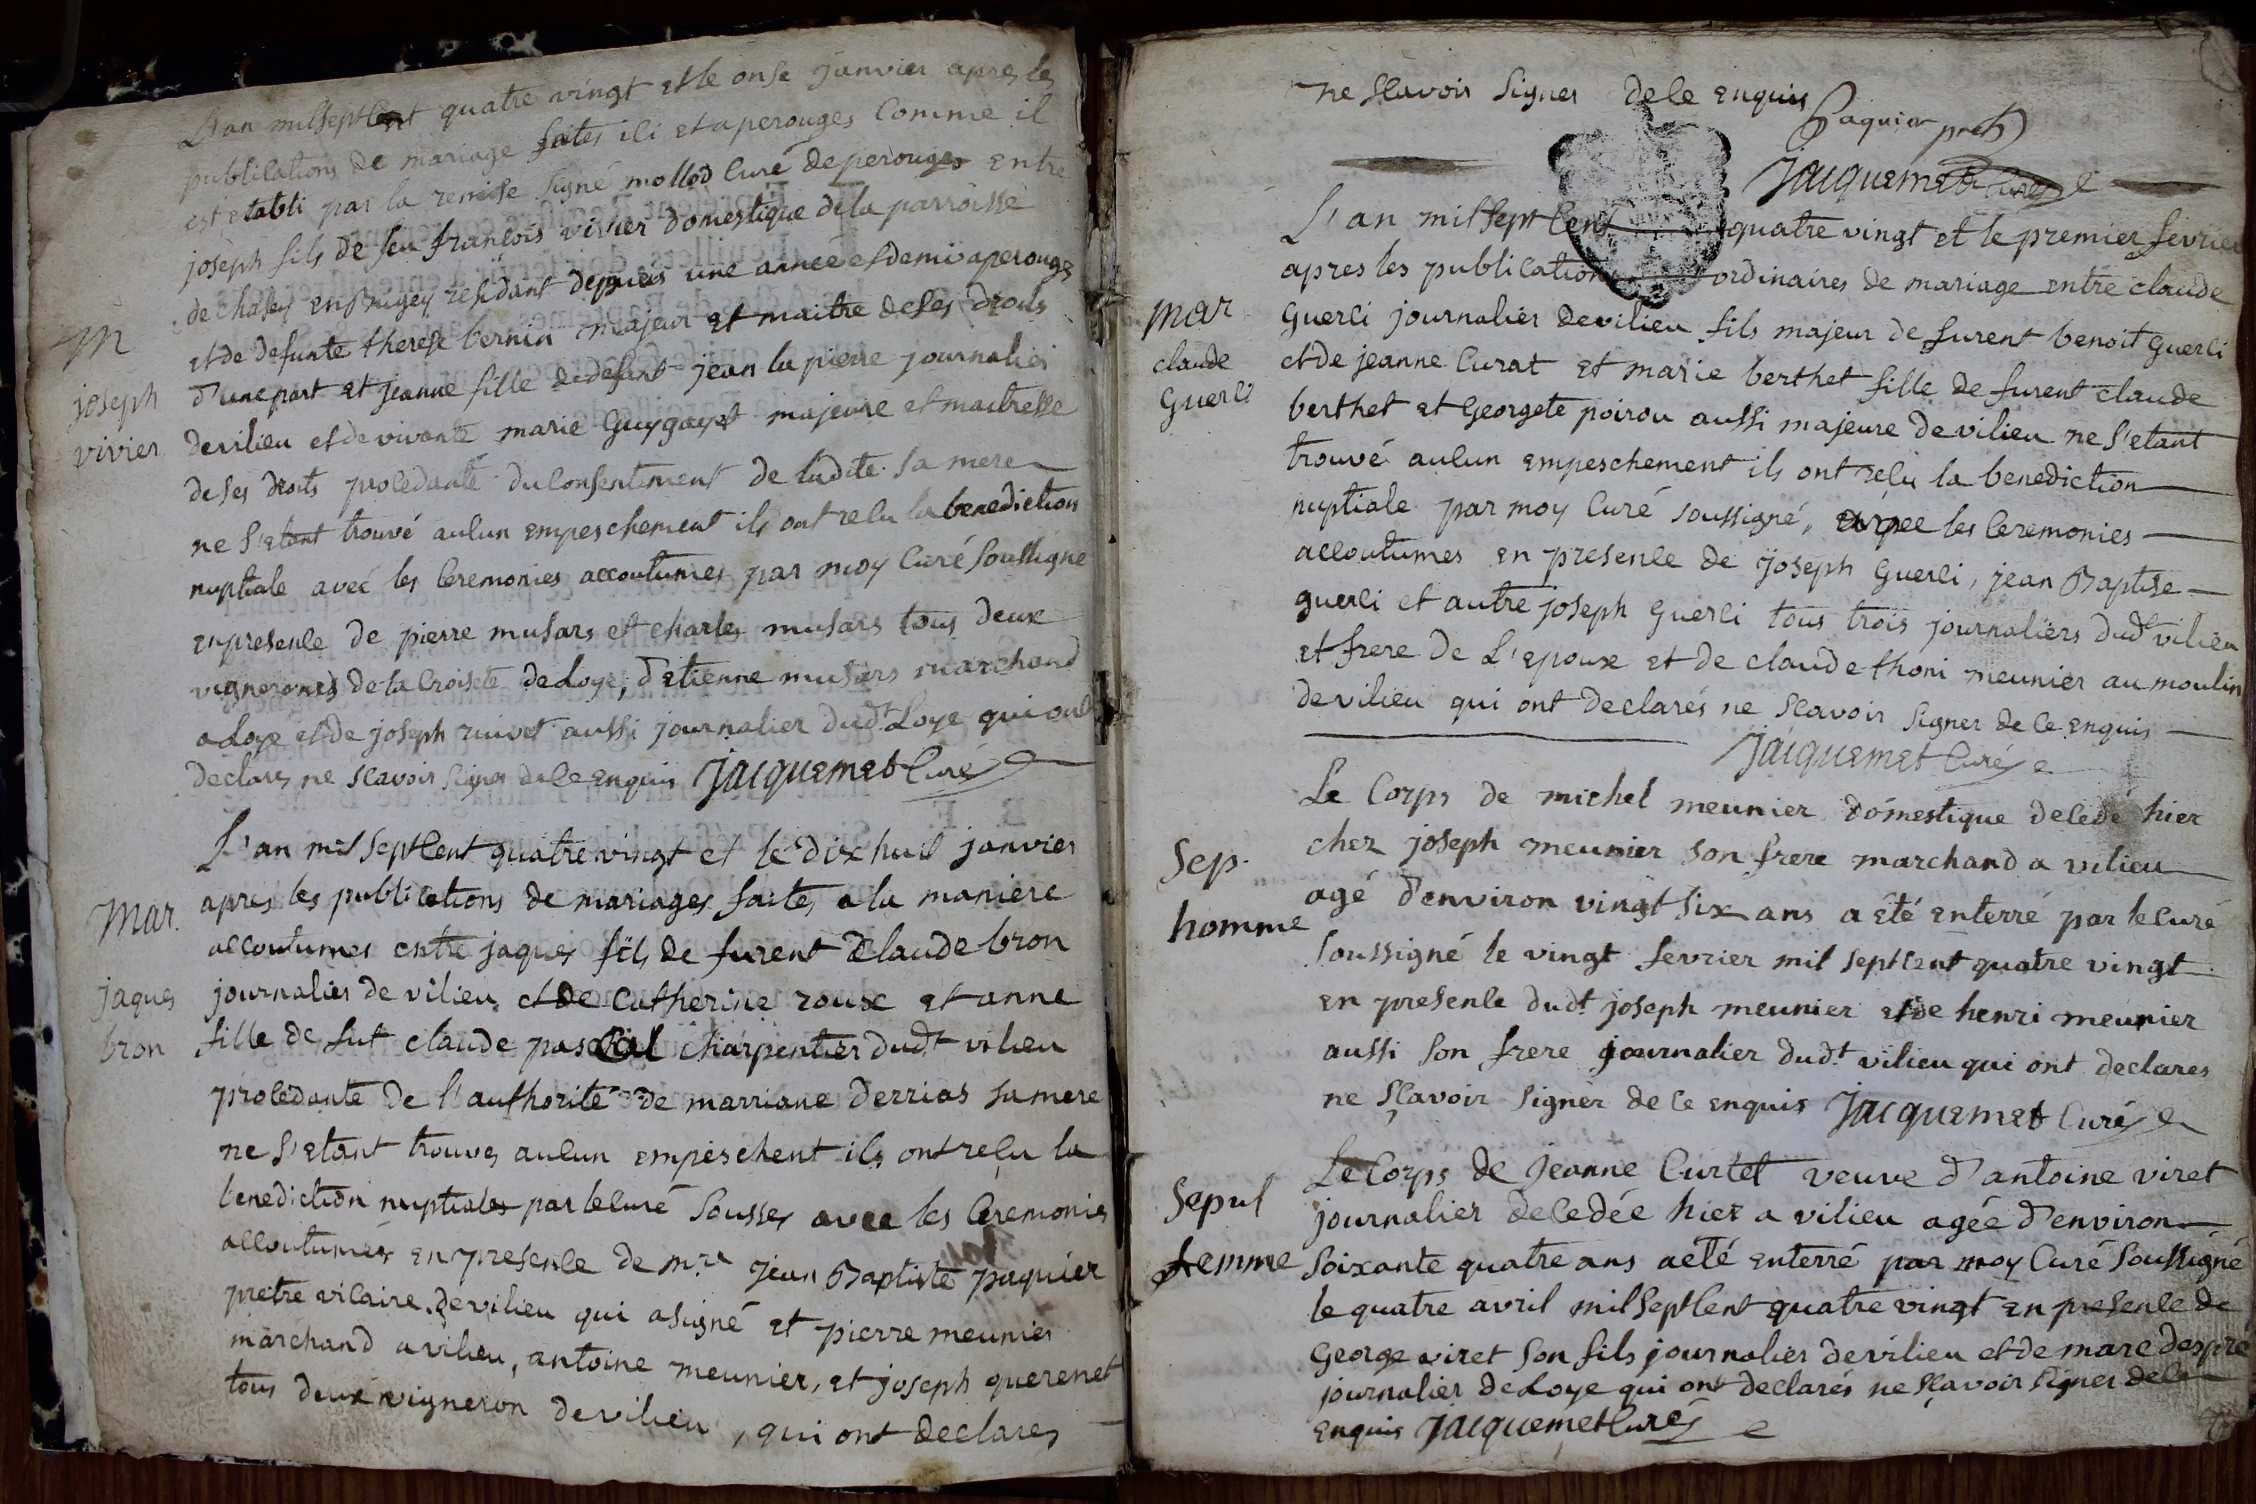 L'an milseptcent quatre vingt et le onse janvier apres les
publications de mariage faites ici et a perouges comme il
est etabli par la remise signé mollod curé de perouges entre
joseph fils de feu francois vivier domestique de la parroisse
de chasey en bugey residant depuis une année et demi a perouges
et de defunte therese bernin majeur et maitre de ses droits
d'une part et jeanne fille de defunt jean la pierre journalier
de vilieu et de vivante marie Guygayet majeure et maitresse
de ses droits procedante du consentement de ladite sa mere
ne s'etant trouvé aucun empeschement ils ont recu la benediction
nuptiale avec les ceremonies accoutumes par moy curé soussigne
en presence de pierre musars et charles musars tous deux
vignerones de la croisete de Loye, d'etienne musars marchand
a Loye et de joseph ruivet aussi journalier dudt Loye qui ont
declares ne scavoir signer de ce enquis jacquemet curé
m
joseph
vivier
L'an mil septcent quatre vingt et le dix huit janvier
apres les publications de mariages faites a la maniere
accoutumes entre jaques fils de furent claude bron
journalier de vilieu et de catherine roux et anne
fille de fut claude pascal charpentier dudt vilieu
procedante de l'authorité de marriane derrias sa mere
ne s'etant trouves aucun empeschent ils ont reçu la
benediction nuptiales par le curé sousses avec les ceremonies
accoutumées en presence de mre jean Baptiste paquier
pretre vicaire de vilieu qui a signé et pierre meunier
marchand a vilieu, antoine meunier, et joseph querenet
tous deux vigneron de vilieu, qui ont declares
mar.
jaques
bron
ne scavoir signer de ce enquis
paquier pretr
jacquemet curé
L'an mil sept cent quatre vingt et le premier fevrier
apres les publication ordinaires de mariage entre claude
Guerci journalier de vilieu fils majeur de furent benoit Guerci
et de jeanne curat et marie berthet fille de furent claude
berthet et Georgete poirou aussi majeure de vilieu ne s'etant
trouvé aucun empeschement ils ont reçu la benediction
nuptiale par moy curé soussigné, avec les ceremonies
accoutumes en presence de joseph Guerci, jean Baptise
guerci et autre joseph Guerci tous trois journaliers dudt vilieu
et frere de l'epoux et de claude thoni meunier au moulin
de vilieu qui ont declarés ne scavoir signer de ce enquis
jacquemet curé
mar
claude
Guerci
Le corps de michel meunier domestique decede hier
chez joseph meunier son frere marchand a vilieu
agé d'environ vingt six ans a eté enterré par le curé
soussigné le vingt fevrier mil septcent quatre vingt
en presence dudt joseph meunier et de henri meunier
aussi son frere journalier dudt vilieu qui ont declares
ne sçavoir signer de ce enquis jacquemet curé
Sep.
homme
Le corps de jeanne curtet veuve d'antoine viret
journalier decedée hier a vilieu agée d'environ
soixante quatre ans a eté enterré par moy curé soussigné
le quatre avril milseptcent quatre vingt en presence de
George viret son fils journalier de vilieu et de marc despré
journalier de Loye qui ont declarés ne scavoir signer de ce
enquis jacquemet curé
Sepul
femme